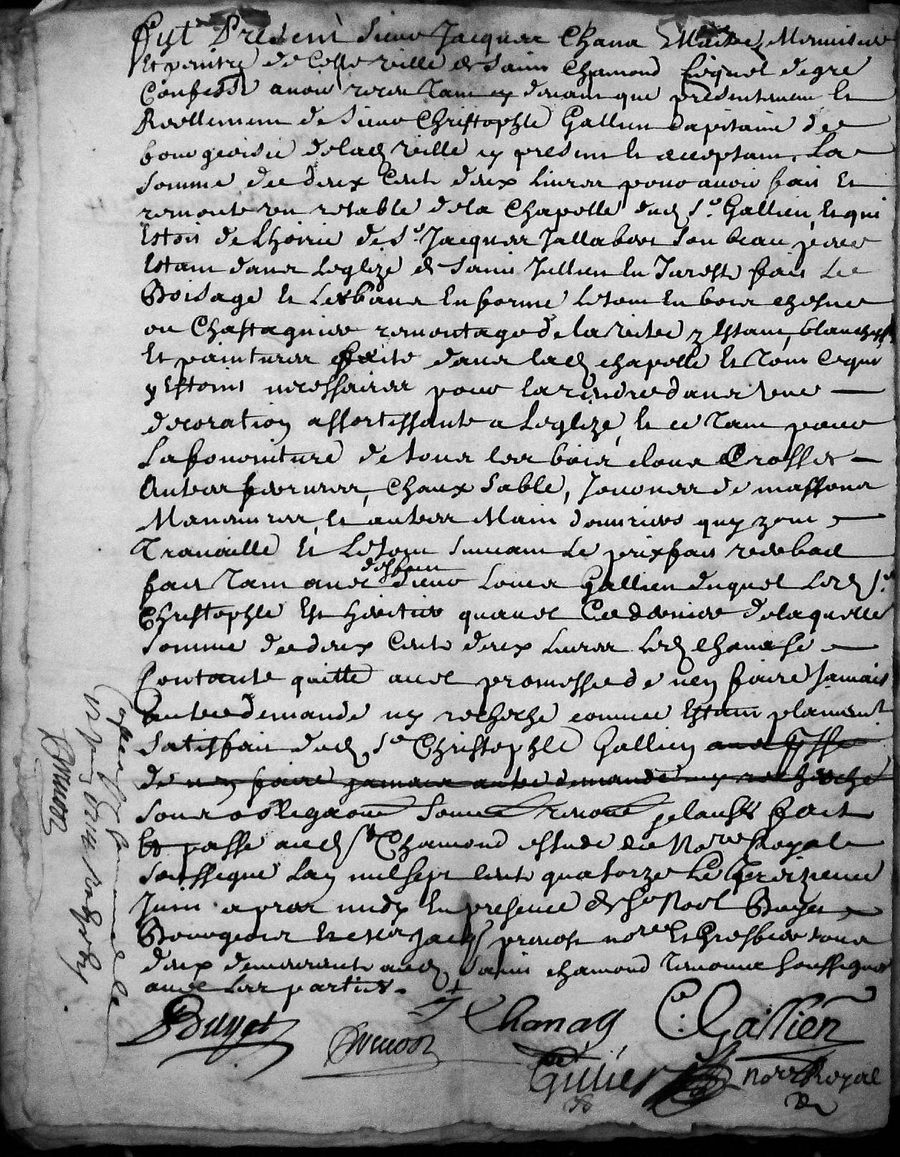 Fut Present sieur Jacques Chana Maitre Menuisier
Et peintre de Cette ville de Saint Chamond lequel de gre
Confesse avoir receu Tant cy devant que presentement et
Reellement de sieur Christophle Gallien Capitaine de
bourgeoisie de lad ville cy present et acceptant, La
somme de deux Cent deux livres pour avoir fait Et
remonté un retable de la Chapelle dud Sr. Gallien, Et qui
Estoit de Lhoirie de Sr. Jacques Jallabert son beau pere
Estant dans Leglize de Saint Jullien En Jarest fait Le
Boisage Et Les bans En forme Letout En bois chesne
ou Chastagnier remontage de la vitre y Estant, blanchis
Et peintures faite dans lad chapelle Et Tout Cequi
y Estoint necessaires pour La rendre dans une
decoration assortissante a Leglize, Et ce Tant pour
La fourniture de tous les bois clous Crosses
Autres ferrures, Chaux Sable, Journes de massons
Manoeuvres, Et autres Main d'ouvriers quy y ont
Travaillé Et Letout suivant Le prixfait verbal
fait Tant avec deffunt sieur Louis Gallien duquel Led Sr.
Christophle Est heritier qu'avec Ce dernier de laquelle
somme de deux Cent deux livres Led Chana se
Contante quitte avec promesse de n'en faire Jamais
Autre demande ny recherche comme Estant plainement
Satisfait dud Sr Christophle Gallien avec promesse
de n'en faire jamais autre demande ny recherche
Sous obligaons Soumions renons et clauses fait
Et passé aud St Chamond estude de Nore Royal
soussigne Lan mil sept cent quatorze Le Treizieme
Juin apres midy En presence de Buyet
Bourgeois Et Jacq prevost nore Et Greffier tous
deux demeurants aud Saint chamond Temoins soussignes
avec Les parties.
Buyet
Prevost
J Chanas
C. Gallien
Gillier
Nore Royal